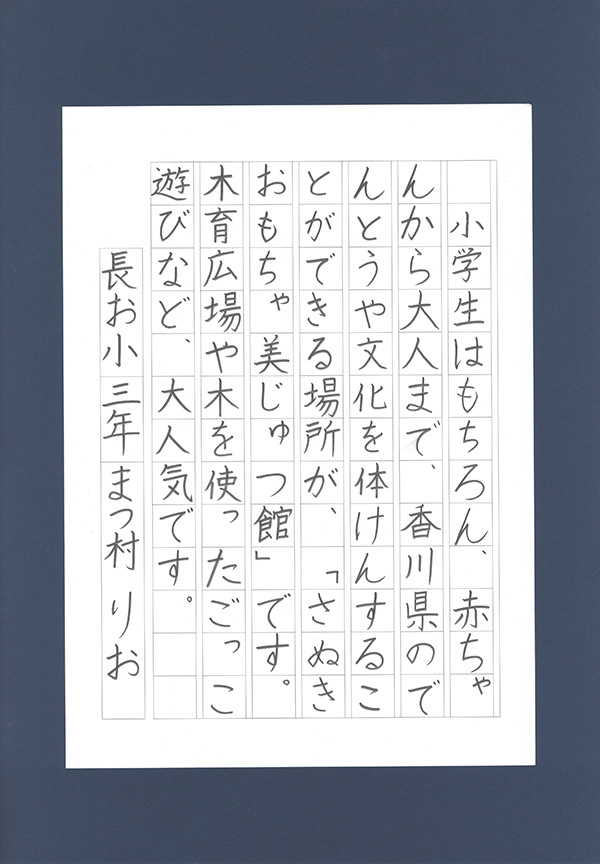 小学生はもちろん、赤ちゃ
んから大人まで、香川県ので
んとうや文化を体けんするこ
とができる場所が、「さぬき
おもちゃ美じゅつ館」です。
木育広場や木を使ったごっこ
遊びなど、大人気です。
長お小三年まつ村りお